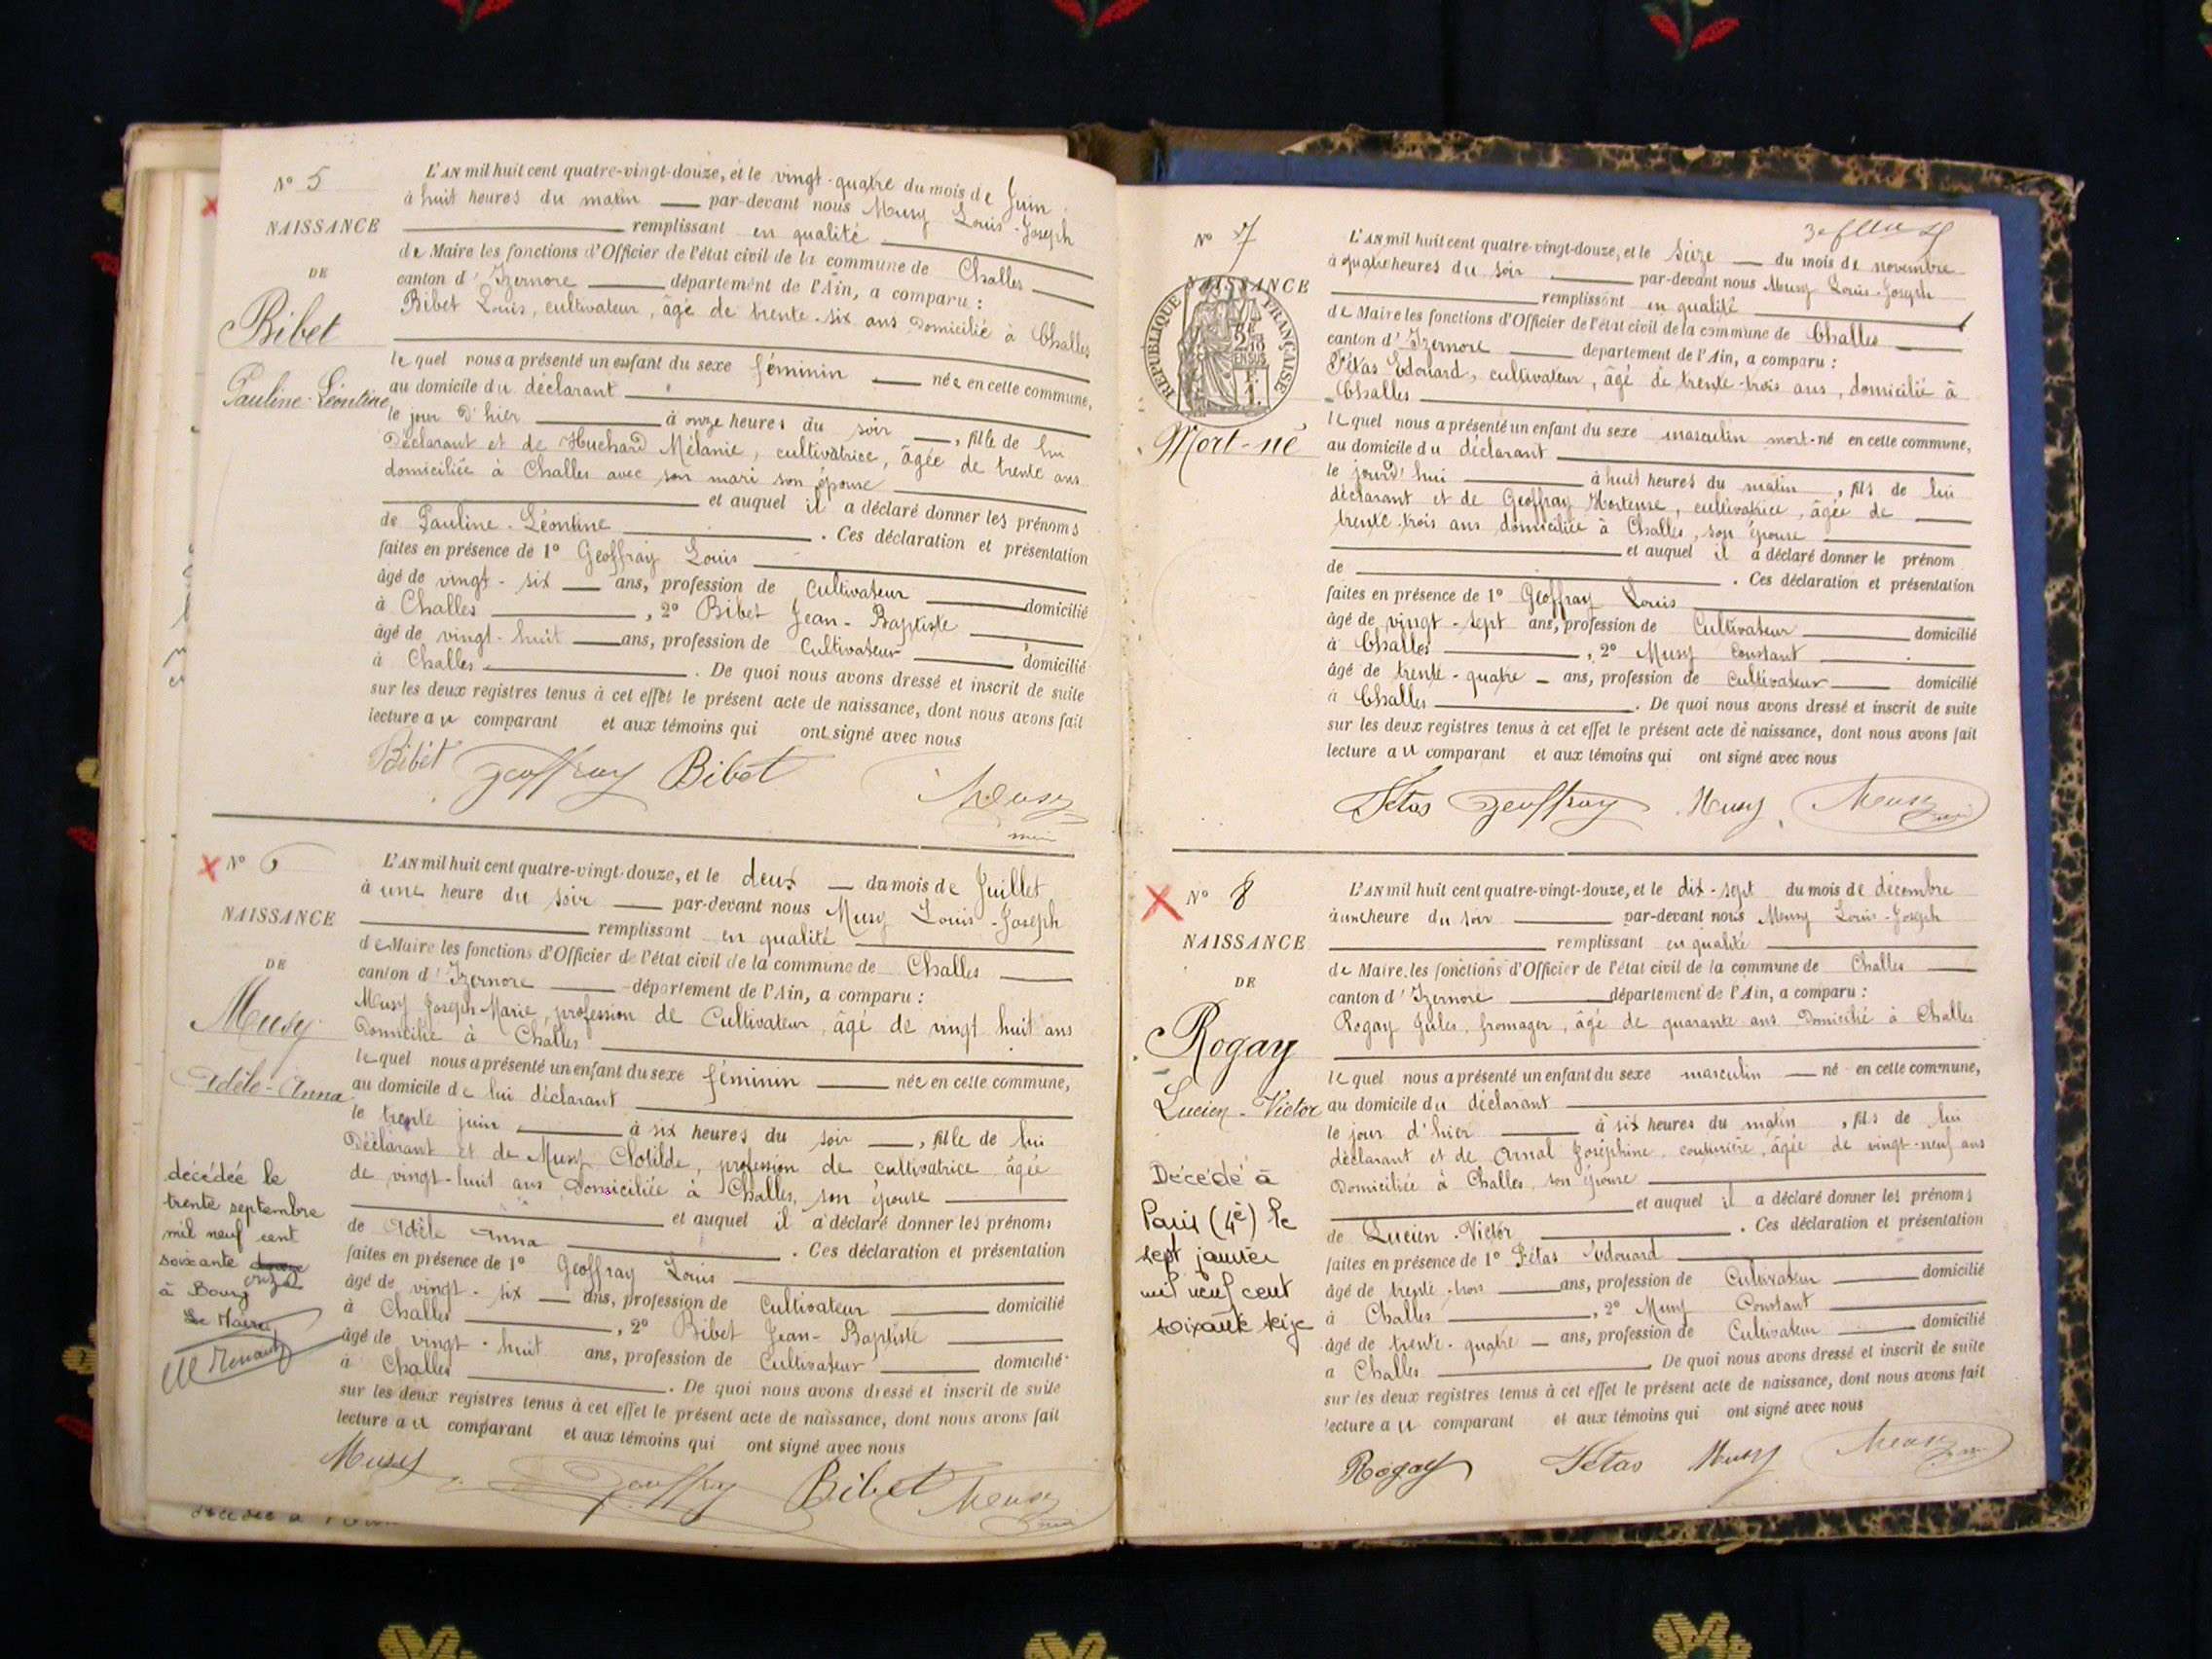 N° 5
NAISSANCE
DE
Bibet
Pauline-Léontine
L'AN mil huit cent quatre-vingt-douze, et le vingt-quatre du mois de Juin
à huit heures du matin par-devant nous Musy Louis-Joseph
remplissant en qualité
de Maire les fonctions d'Officier de l'état civil de la commune de Challes
canton d'Izernore département de l'Ain, a comparu :
Bibet Louis, cultivateur, âgé de trente-six ans Domicilié à Challes
lequel nous a présenté un enfant du sexe féminin née en cette commune,
au domicile du déclarant
le jour d'hier à onze heures du soir, fille de lui
Déclarant et de Huchard Mélanie, cultivatrice, âgée de trente ans
domiciliée à Challes avec son mari son épouse
et auquel il a déclaré donner les prénoms
de Pauline-Léontine. Ces déclaration et présentation
faites en présence de 1° Geoffray Louis
âgé de vingt-six ans, profession de Cultivateur domicilié
à Challes, 2° Bibet Jean-Baptiste
âgé de vingt-huit ans, profession de Cultivateur domicilié
à Challes. De quoi nous avons dressé et inscrit de suite
sur les deux registres tenus à cet effet le présent acte de naissance, dont nous avons fait
lecture au comparant et aux témoins qui ont signé avec nous
Bibet Geoffray Bibet Musy
N° 6
NAISSANCE
DE
Musy
Adèle-Anna
décédée le
trente septembre
mil neuf cent
soixante onze
à Bourg
Le Maire
L'AN mil huit cent quatre-vingt-douze, et le deux du mois de Juillet
à une heure du soir par-devant nous Musy Louis-Joseph
remplissant en qualité
de Maire les fonctions d'Officier de l'état civil de la commune de Challes
canton d'Izernore département de l'Ain, a comparu :
Musy Joseph-Marie, profession de Cultivateur, âgé de vingt huit ans
Domicilié à Challes
lequel nous a présenté un enfant du sexe féminin née en cette commune,
au domicile de lui déclarant
le trente juin à six heures du soir, fille de lui
Déclarant et de Musy Clotilde, profession de cultivatrice âgée
de vingt-huit ans, Domiciliée à Challes, son épouse
et auquel il a déclaré donner les prénoms
de Adèle Anna. Ces déclaration et présentation
faites en présence de 1° Geoffray Louis
âgé de vingt-six ans, profession de Cultivateur domicilié
à Challes, 2° Bibet Jean-Baptiste
âgé de vingt-huit ans, profession de Cultivateur domicilié
à Challes. De quoi nous avons dressé et inscrit de suite
sur les deux registres tenus à cet effet le présent acte de naissance, dont nous avons fait
lecture au comparant et aux témoins qui ont signé avec nous
Musy Geoffray Bibet Musy
N° 7
NAISSANCE
RÉPUBLIQUE FRANÇAISE
2/10
EN SUS
Mort-né
L'AN mil huit cent quatre-vingt-douze, et le seize du mois de novembre
à quatre heures du soir par-devant nous Musy Louis-Joseph
remplissant en qualité
de Maire les fonctions d'Officier de l'état civil de la commune de Challes
canton d'Izernore département de l'Ain, a comparu :
Fétas Edouard, cultivateur, âgé de trente-trois ans, domicilié à
Challes
lequel nous a présenté un enfant du sexe masculin mort-né en cette commune,
au domicile du déclarant
le jourd'hui à huit heures du matin, fils de lui
déclarant et de Geoffray Hortense, cultivatrice, âgée de
trente-trois ans domiciliée à Challes, son épouse
et auquel il a déclaré donner le prénom
de. Ces déclaration et présentation
faites en présence de 1° Geoffray Louis
âgé de vingt-sept ans, profession de Cultivateur domicilié
à Challes, 2° Musy Constant
âgé de trente-quatre ans, profession de Cultivateur domicilié
à Challes. De quoi nous avons dressé et inscrit de suite
sur les deux registres tenus à cet effet le présent acte de naissance, dont nous avons fait
lecture au comparant et aux témoins qui ont signé avec nous
Fetas Geoffray Musy Musy
N° 8
NAISSANCE
DE
Rogay
Lucien-Victor
Décédé à
Paris (4e) le
sept janvier
mil neuf cent
soixante seize
L'AN mil huit cent quatre-vingt-douze, et le dix-sept du mois de décembre
à une heure du soir par-devant nous Musy Louis-Joseph
remplissant en qualité
de Maire les fonctions d'Officier de l'état civil de la commune de Challes
canton d'Izernore département de l'Ain, a comparu :
Rogay Jules, fromager, âgé de quarante ans Domicilié à Challes
lequel nous a présenté un enfant du sexe masculin né en cette commune,
au domicile du déclarant
le jour d'hier à six heures du matin, fils de lui
déclarant et de Arnal Joséphine, couturière, âgée de vingt-neuf ans
Domiciliée à Challes, son épouse
et auquel il a déclaré donner les prénoms
de Lucien-Victor. Ces déclaration et présentation
faites en présence de 1° Fétas Edouard
âgé de trente-trois ans, profession de Cultivateur domicilié
à Challes, 2° Musy Constant
âgé de trente-quatre ans, profession de Cultivateur domicilié
à Challes. De quoi nous avons dressé et inscrit de suite
sur les deux registres tenus à cet effet le présent acte de naissance, dont nous avons fait
lecture au comparant et aux témoins qui ont signé avec nous
Rogay Fetas Musy Musy